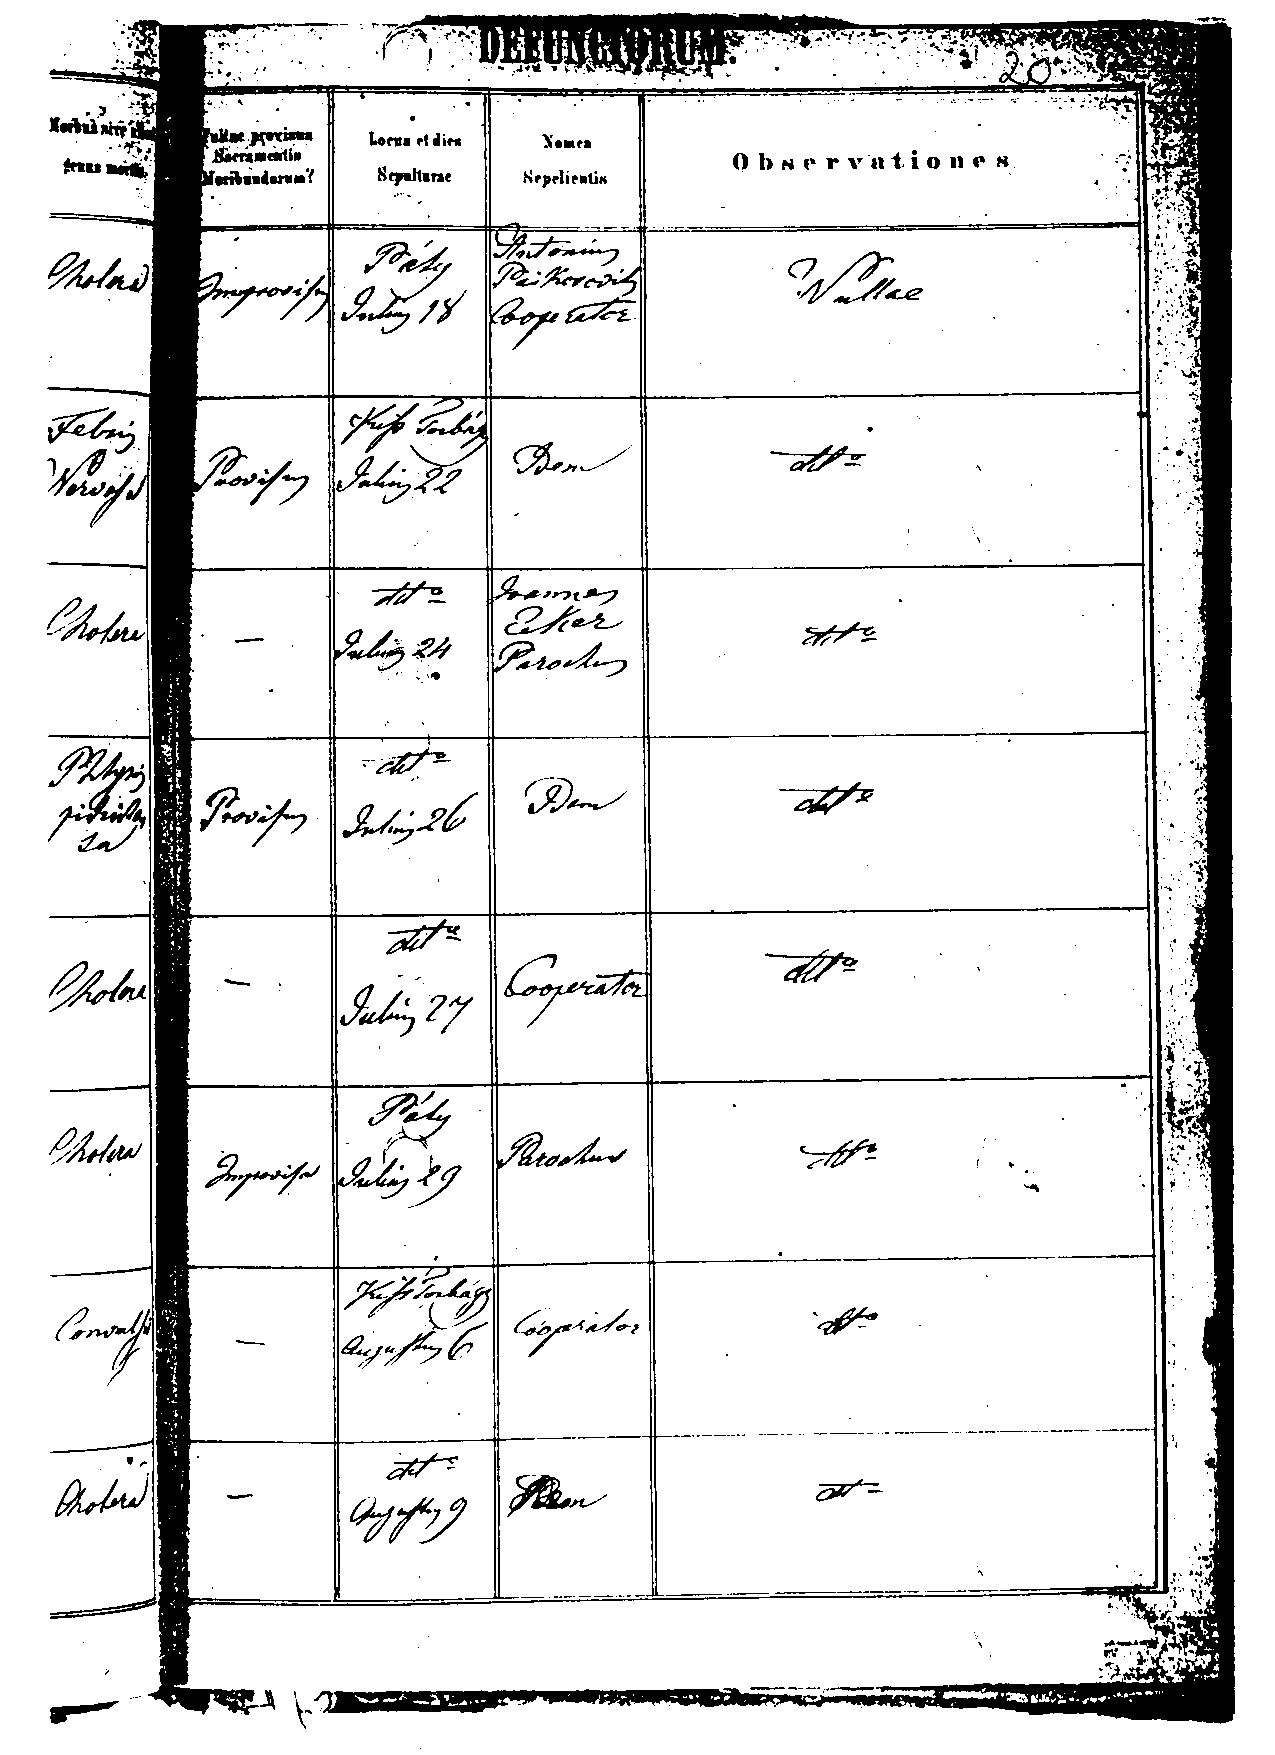 DEFUNCTORUM.
20
Morbus sive
genus mortis.
Fuitne provisus
Sacramentis
Moribundorum?
Locus et dies
Sepulturae
Nomen
Sepelientis
Observationes
Cholera
Improvisus
Páty
Julius 18
Antonius
Cooperator
Nullae
Febris
Nervosa
Provisus
Kiss Torbágy
Julius 22
Idem
dtto
Cholera
—
dtto
Julius 24
Joannes
Eker
Parochus
dtto
Phtysis
pituito
sa
Provisus
dtto
Julius 26
Idem
dtto
Cholera
—
dtto
Julius 27
Cooperator
dtto
Cholera
Improvisa
Páty
Julius 29
Parochus
dtto
—
Kiss Torbágy
Augustus 6
Cooperator
dtto
Cholera
—
dtto
Augustus 9
Idem
dtto